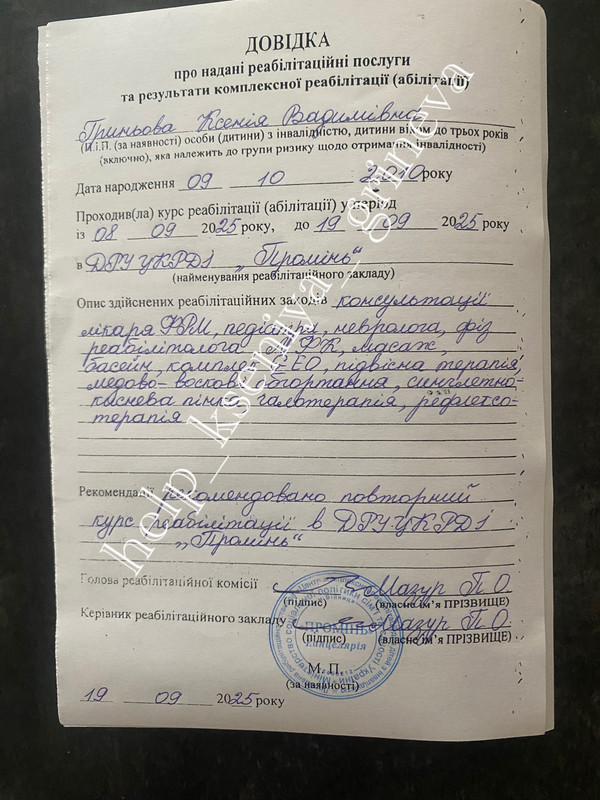 ДОВІДКА
про надані реабілітаційні послуги
та результати комплексної реабілітації (абілітації)
Гриньова Ксенія Вадимівна
(П.і.П. (за наявності) особи (дитини) з інвалідністю, дитини віком до трьох років
(включно), яка належить до групи ризику щодо отримання інвалідності)
Дата народження 09 10 2010 року
Проходив(ла) курс реабілітації (абілітації) у період
із 08 09 2025 року, до 19 09 2025 року
в ДРУ ЦКРДІ „Промінь“
(найменування реабілітаційного закладу)
Опис здійснених реабілітаційних заходів консультації
лікаря ФРМ, педіатра, невролога, фіз
реабілітолога ЛФК, масаж,
басейн, комплекс підвісна терапія,
медово-воскові обгортання, синглетно-
киснева пінка, галотерапія, рефлексо-
терапія
Рекомендації рекомендовано повторний
курс реабілітації в ДРУ ЦКРДІ
„Промінь“
Голова реабілітаційної комісії Мазур П.О.
(підпис) (власне ім’я ПРІЗВИЩЕ)
Керівник реабілітаційного закладу Мазур П.О.
(підпис) (власне ім’я ПРІЗВИЩЕ)
ПРОМІНЬ
Канцелярія
М. П.
(за наявності)
19 09 2025 року
help_kseniya_grineva